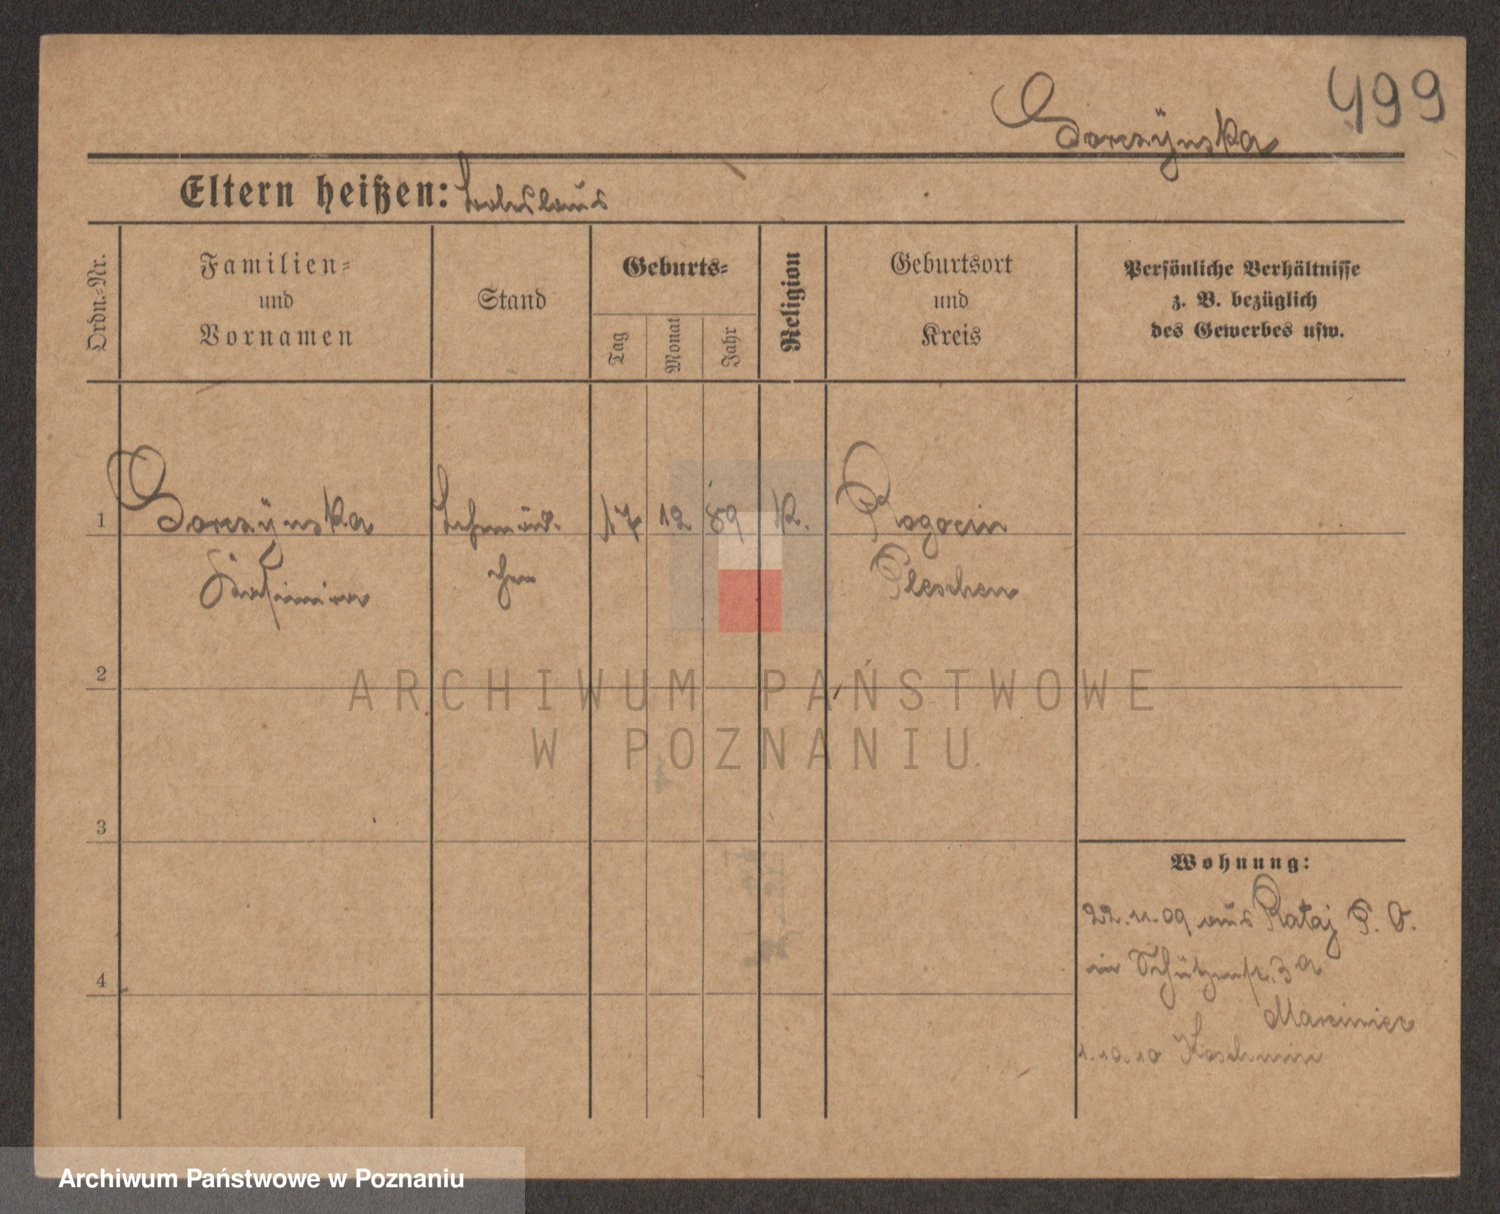 499
Gorzÿnska
Eltern heißen: Ladislaus
Ordn.-Nr.
Familien-
und
Vornamen
Stand
Geburts-
Tag
Monat
Jahr
Religion
Geburtsort
und
Kreis
Persönliche Verhältnisse
z. B. bezüglich
des Gewerbes usw.
1 Gorzÿnska Lehrmäd- 17 12 89 K. Rogocin
Kasimira chen Pleschen
2
3
4
Wohnung:
22.11.09 aus Rataj P. O.
in Schützenstr. 3a
1.10.10 Koschmin
ARCHIWUM PAŃSTWOWE
W POZNANIU
Archiwum Państwowe w Poznaniu